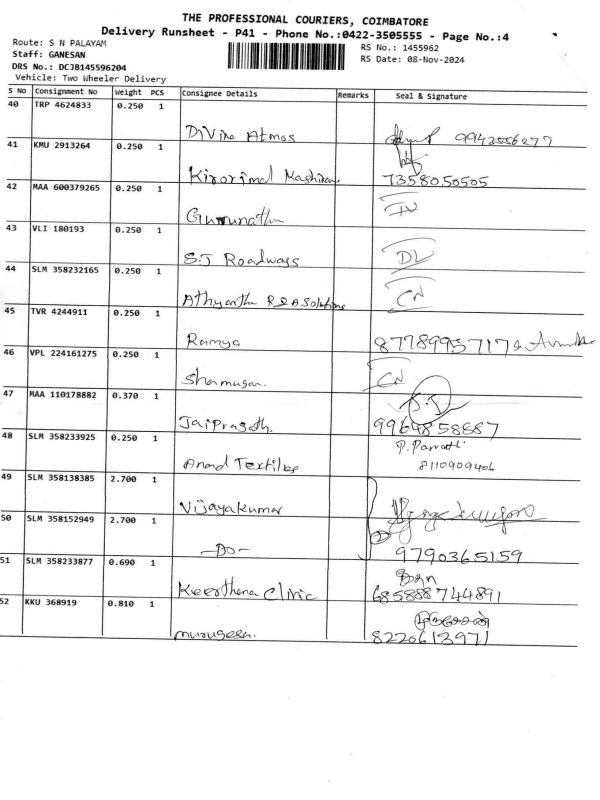 THE PROFESSIONAL COURIERS, COIMBATORE
Delivery Runsheet - P41 - Phone No.:0422-3505555 - Page No.:4
Route: S N PALAYAM
RS No.: 1455962
Staff: GANESAN
RS Date: 08-Nov-2024
DRS No.: DCJB145596204
Vehicle: Two Wheeler Delivery
S No Consignment No Weight PCS Consignee Details Remarks Seal & Signature
40 TRP 4624833 0.250 1
DiVine Atmos 9943556277
41 KMU 2913264 0.250 1
Kirorimal Kashiram 7358050505
42 MAA 600379265 0.250 1
Gurunathan IN
43 VLI 180193 0.250 1
S.J Roadways DL
44 SLM 358232165 0.250 1
Athyantha R&A Solutions CN
45 TVR 4244911 0.250 1
Ramya 8778995717
46 VPL 224161275 0.250 1
Shanmugam CN
47 MAA 110178882 0.370 1
Jai Prasath. 9964858887
48 SLM 358233925 0.250 1
P. Parvathi
Anand Textiles 8110909406
49 SLM 358138385 2.700 1
Vijayakumar
50 SLM 358152949 2.700 1
-Do- 9790365159
51 SLM 358233877 0.690 1
Keerthana Clinic 685888744891
52 KKU 368919 0.810 1
முருகேசன்
murugesan. 8220613971